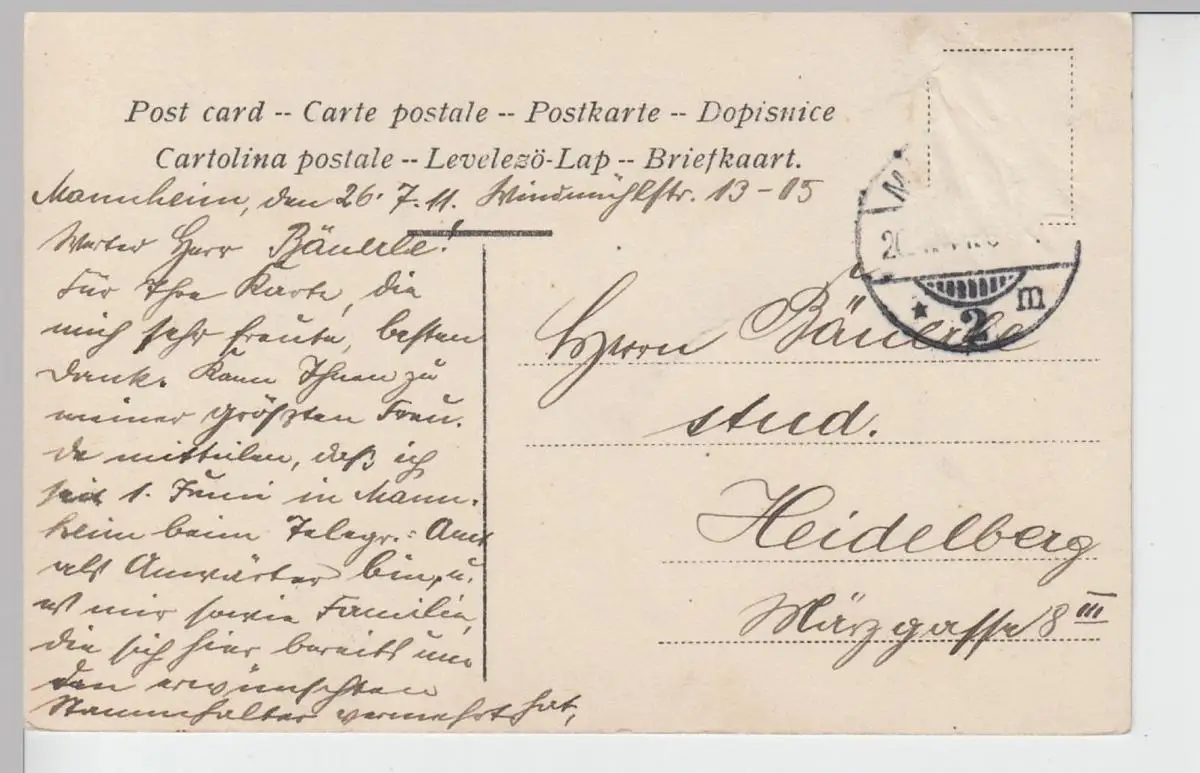 Post card -- Carte postale -- Postkarte -- Dopisnice
Cartolina postale -- Levelezö-Lap -- Briefkaart.
Mannheim, den 26. 7. 11. Windmühlstr. 13-15
Werter Herr Bäuerle!
Für Ihre Karte, die
mich sehr freute, besten
Dank. Kann Ihnen zu
meiner größten Freu-
de mitteilen, daß ich
seit 1. Juni in Mann-
heim beim Telegr.: Amt
als Anwärter bin, u.
es mir sowie Familie,
die sich hier bereits um
den erwünschten
Stammhalter vermehrt hat,
Herrn Bäuerle
stud.
Heidelberg
Märzgasse 8 III
M
2
m